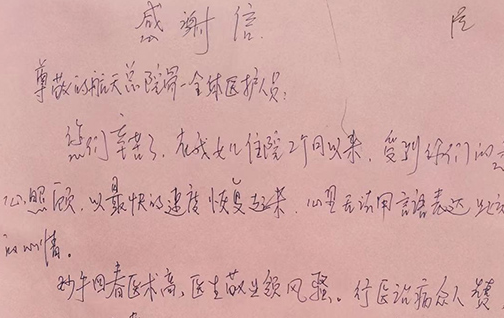 感谢信
尊敬的航天总院骨一全体医护人员:
您们辛苦了,在我女儿住院2个月以来,受到你们的
心照顾,以最快的速度恢复起来,心里无法用言语表达此
的心情。
妙手回春医术高,医生敬业领风骚。行医治病众人赞,